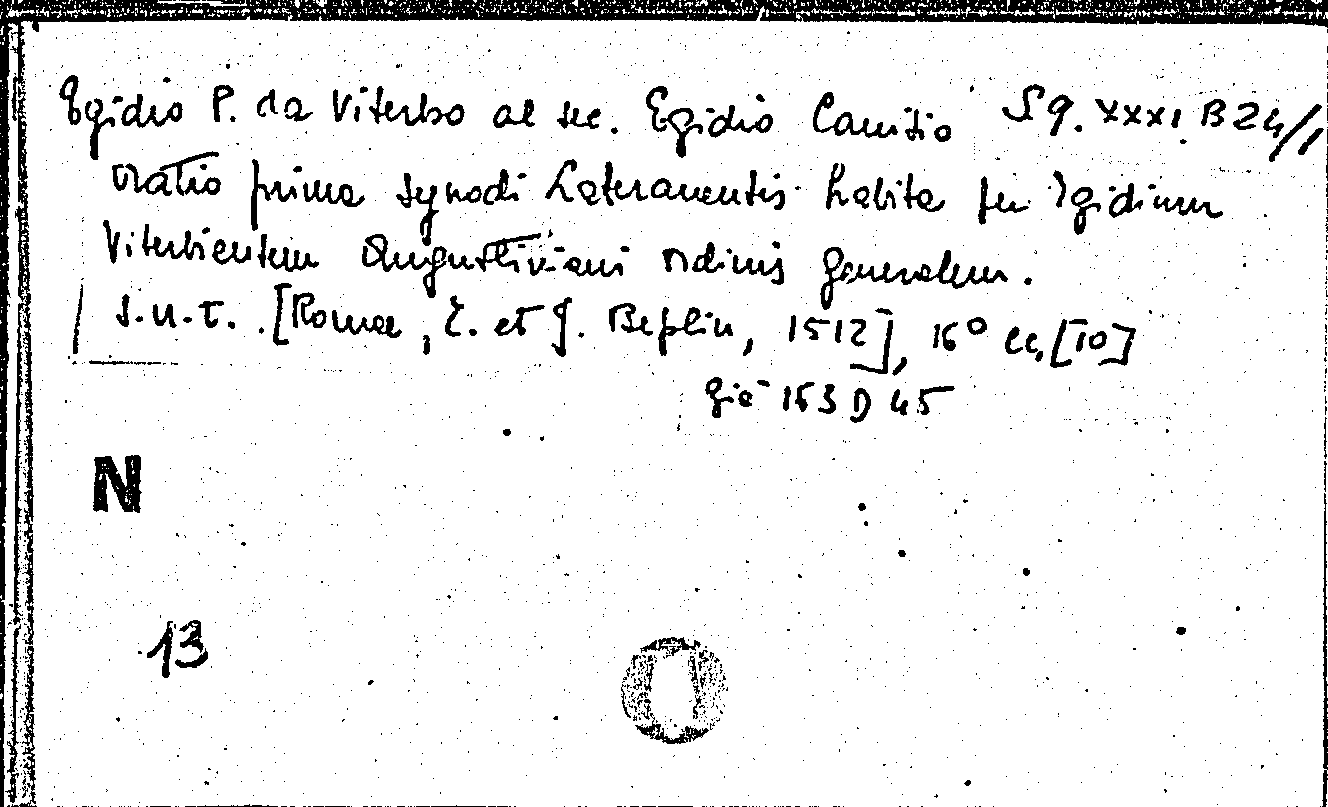 Egidio P. da Viterbo al sec. Egidio Canisio S q. XXXI B 24/1
Oratio prima synodi Lateranensis habita per Egidium
Viterbiensem Augustiniani ordinis generalem.
s.n.t. [Romae, E. et J. Beplin, 1512], 16° cc, [10]
già 163 D 45
N
13